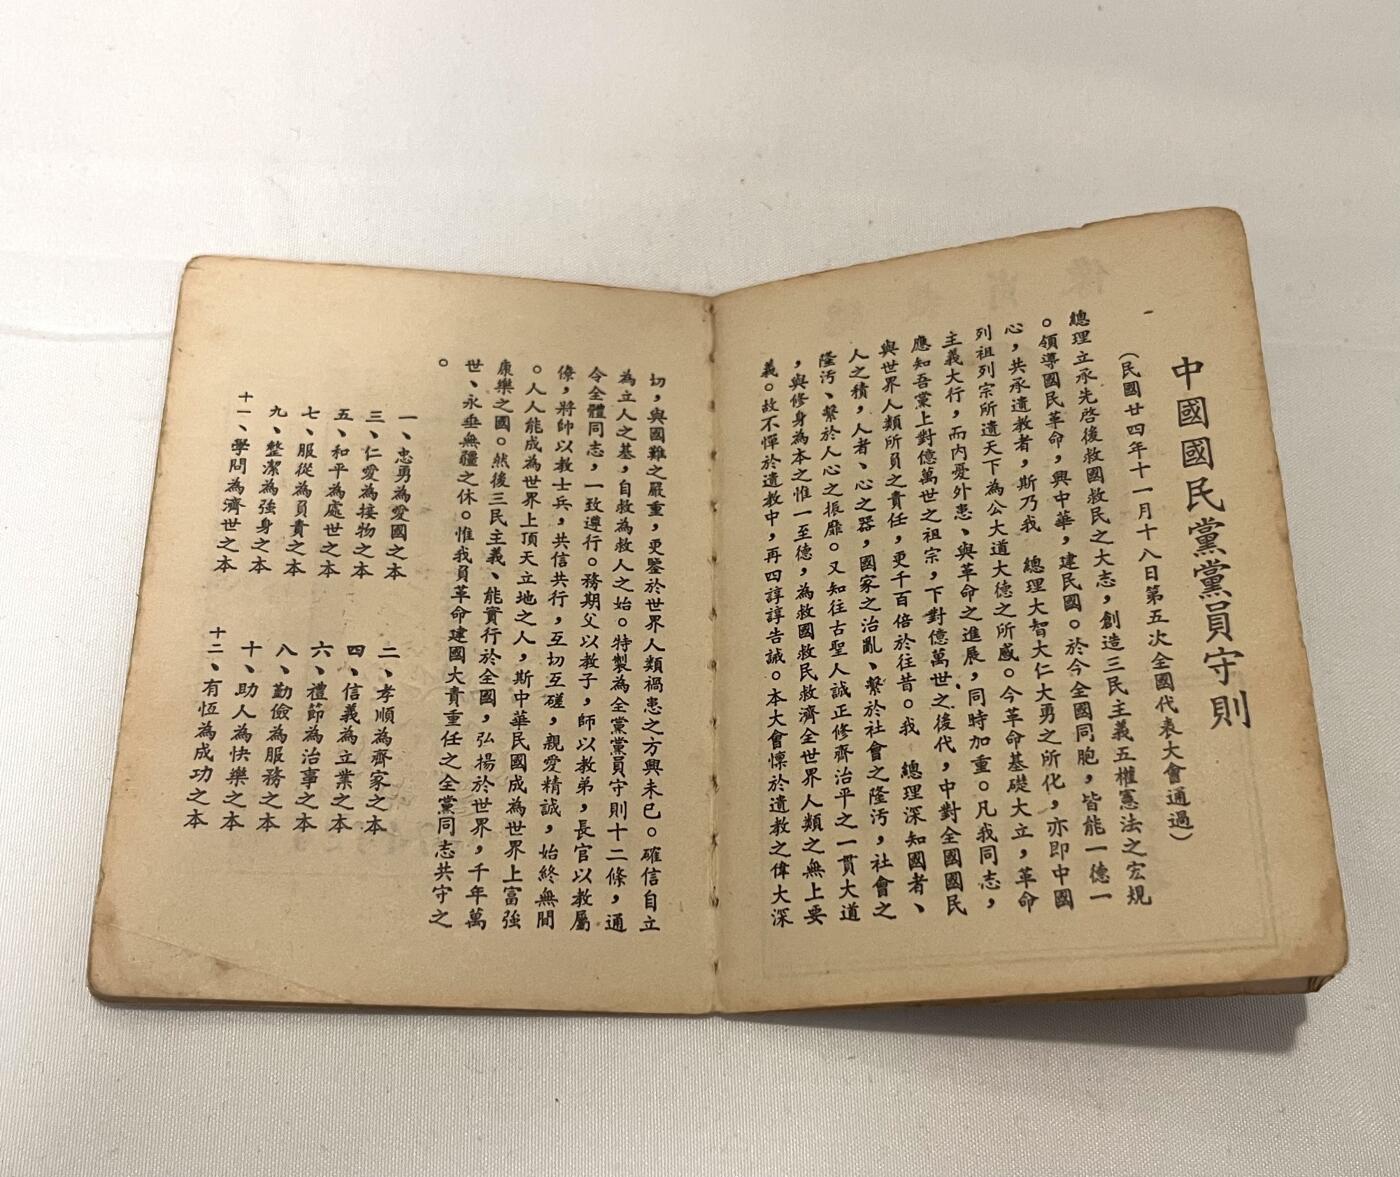 中國國民黨黨員守則
(民國廿四年十一月十八日第五次全國代表大會通過)
總理立承先啓後救國救民之大志,創造三民主義五權憲法之宏規
。領導國民革命,興中華,建民國。於今全國同胞,皆能一德一
心,共承遺教者,斯乃我　總理大智大仁大勇之所化,亦即中國
列祖列宗所遺天下為公大道大德之所感。今革命基礎大立,革命
主義大行,而內憂外患、與革命之進展,同時加重。凡我同志,
應知吾黨上對億萬世之祖宗,下對億萬世之後代,中對全國國民
與世界人類所負之責任,更千百倍於往昔。我　總理深知國者、
人之積,人者、心之器,國家之治亂、繫於社會之隆汚,社會之
隆汚、繫於人心之振靡。又知往古聖人誠正修齊治平之一貫大道
,與修身為本之惟一至德,為救國救民救濟全世界人類之無上要
義。故不憚於遺教中,再四諄諄告誡。本大會懍於遺教之偉大深
切,與國難之嚴重,更鑒於世界人類禍患之方興未已。確信自立
為立人之基,自救為救人之始。特製為全黨黨員守則十二條,通
令全體同志,一致遵行。務期父以教子,師以教弟,長官以教屬
僚,將帥以教士兵,共信共行,互切互磋,親愛精誠,始終無間
。人人能成為世界上頂天立地之人,斯中華民國成為世界上富強
康樂之國。然後三民主義、能實行於全國,弘揚於世界,千年萬
世、永垂無疆之休。惟我員革命建國大責重任之全黨同志共守之
。
一、忠勇為愛國之本
二、孝順為齊家之本
三、仁愛為接物之本
四、信義為立業之本
五、和平為處世之本
六、禮節為治事之本
七、服從為負責之本
八、勤儉為服務之本
九、整潔為強身之本
十、助人為快樂之本
十一、學問為濟世之本
十二、有恆為成功之本